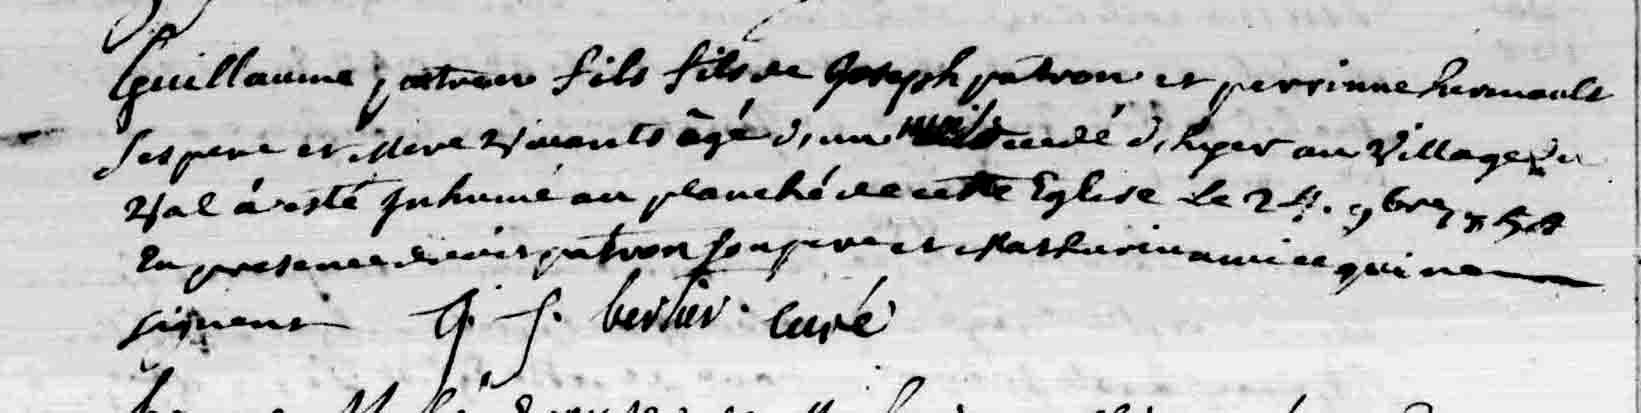 Guillaume patron fils fils de Joseph patron et perrinne hermault
ses pere et Mere Vivants âgé d,un decedé d,hyer au Village du
Val á esté Inhumé au planché de cette Eglise Le 24. 9bre
En presence patron son pere et Mathurin amice qui ne
signent J. f. berhier. curé